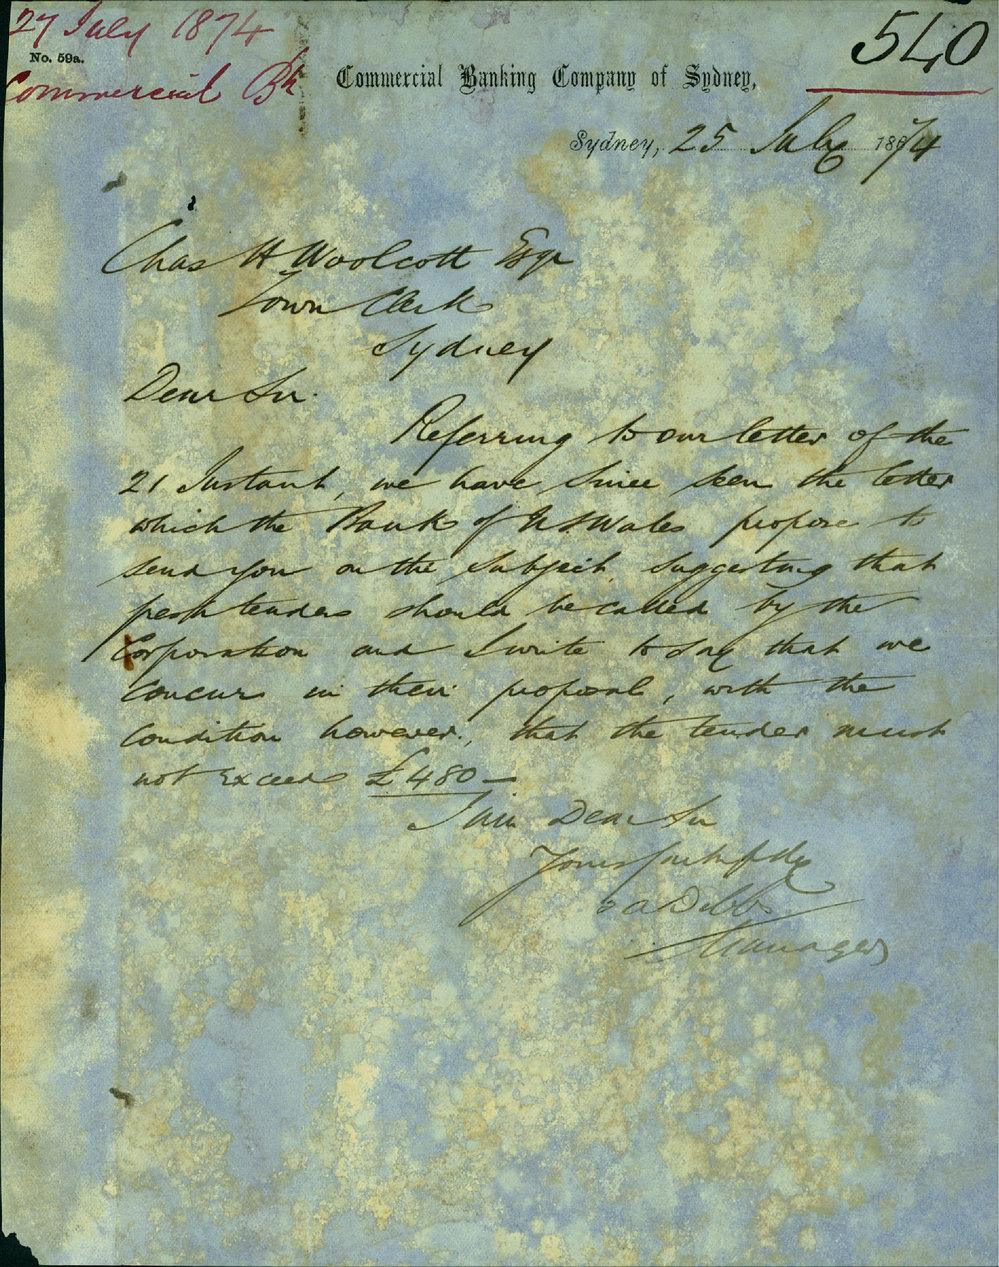 27 July 1874
No. 59a.
Commercial Bk
540
Commercial Banking Company of Sydney,
Sydney, 25 July 1874
Chas H Woolcott Esqr
Town Clerk
Sydney
Dear Sir.
Referring to our letter of the
21 Instant, we have since seen the letter
which the Bank of N.S.Wales propose to
send you on the subject, suggesting that
fresh tenders should be called by the
Corporation and I write to say that we
concur in their proposal, with the
condition however, that the tender must
not exceed £480 —
I am Dear Sir
Yours faithfully
Dibbs
Manager